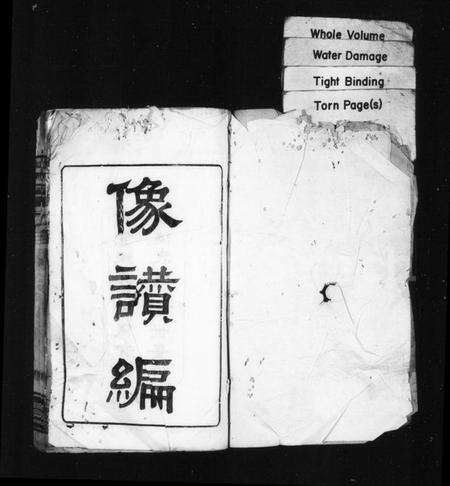 Whole Volume
Water Damage
Tight Binding
Torn Page(s)
像
讚
編